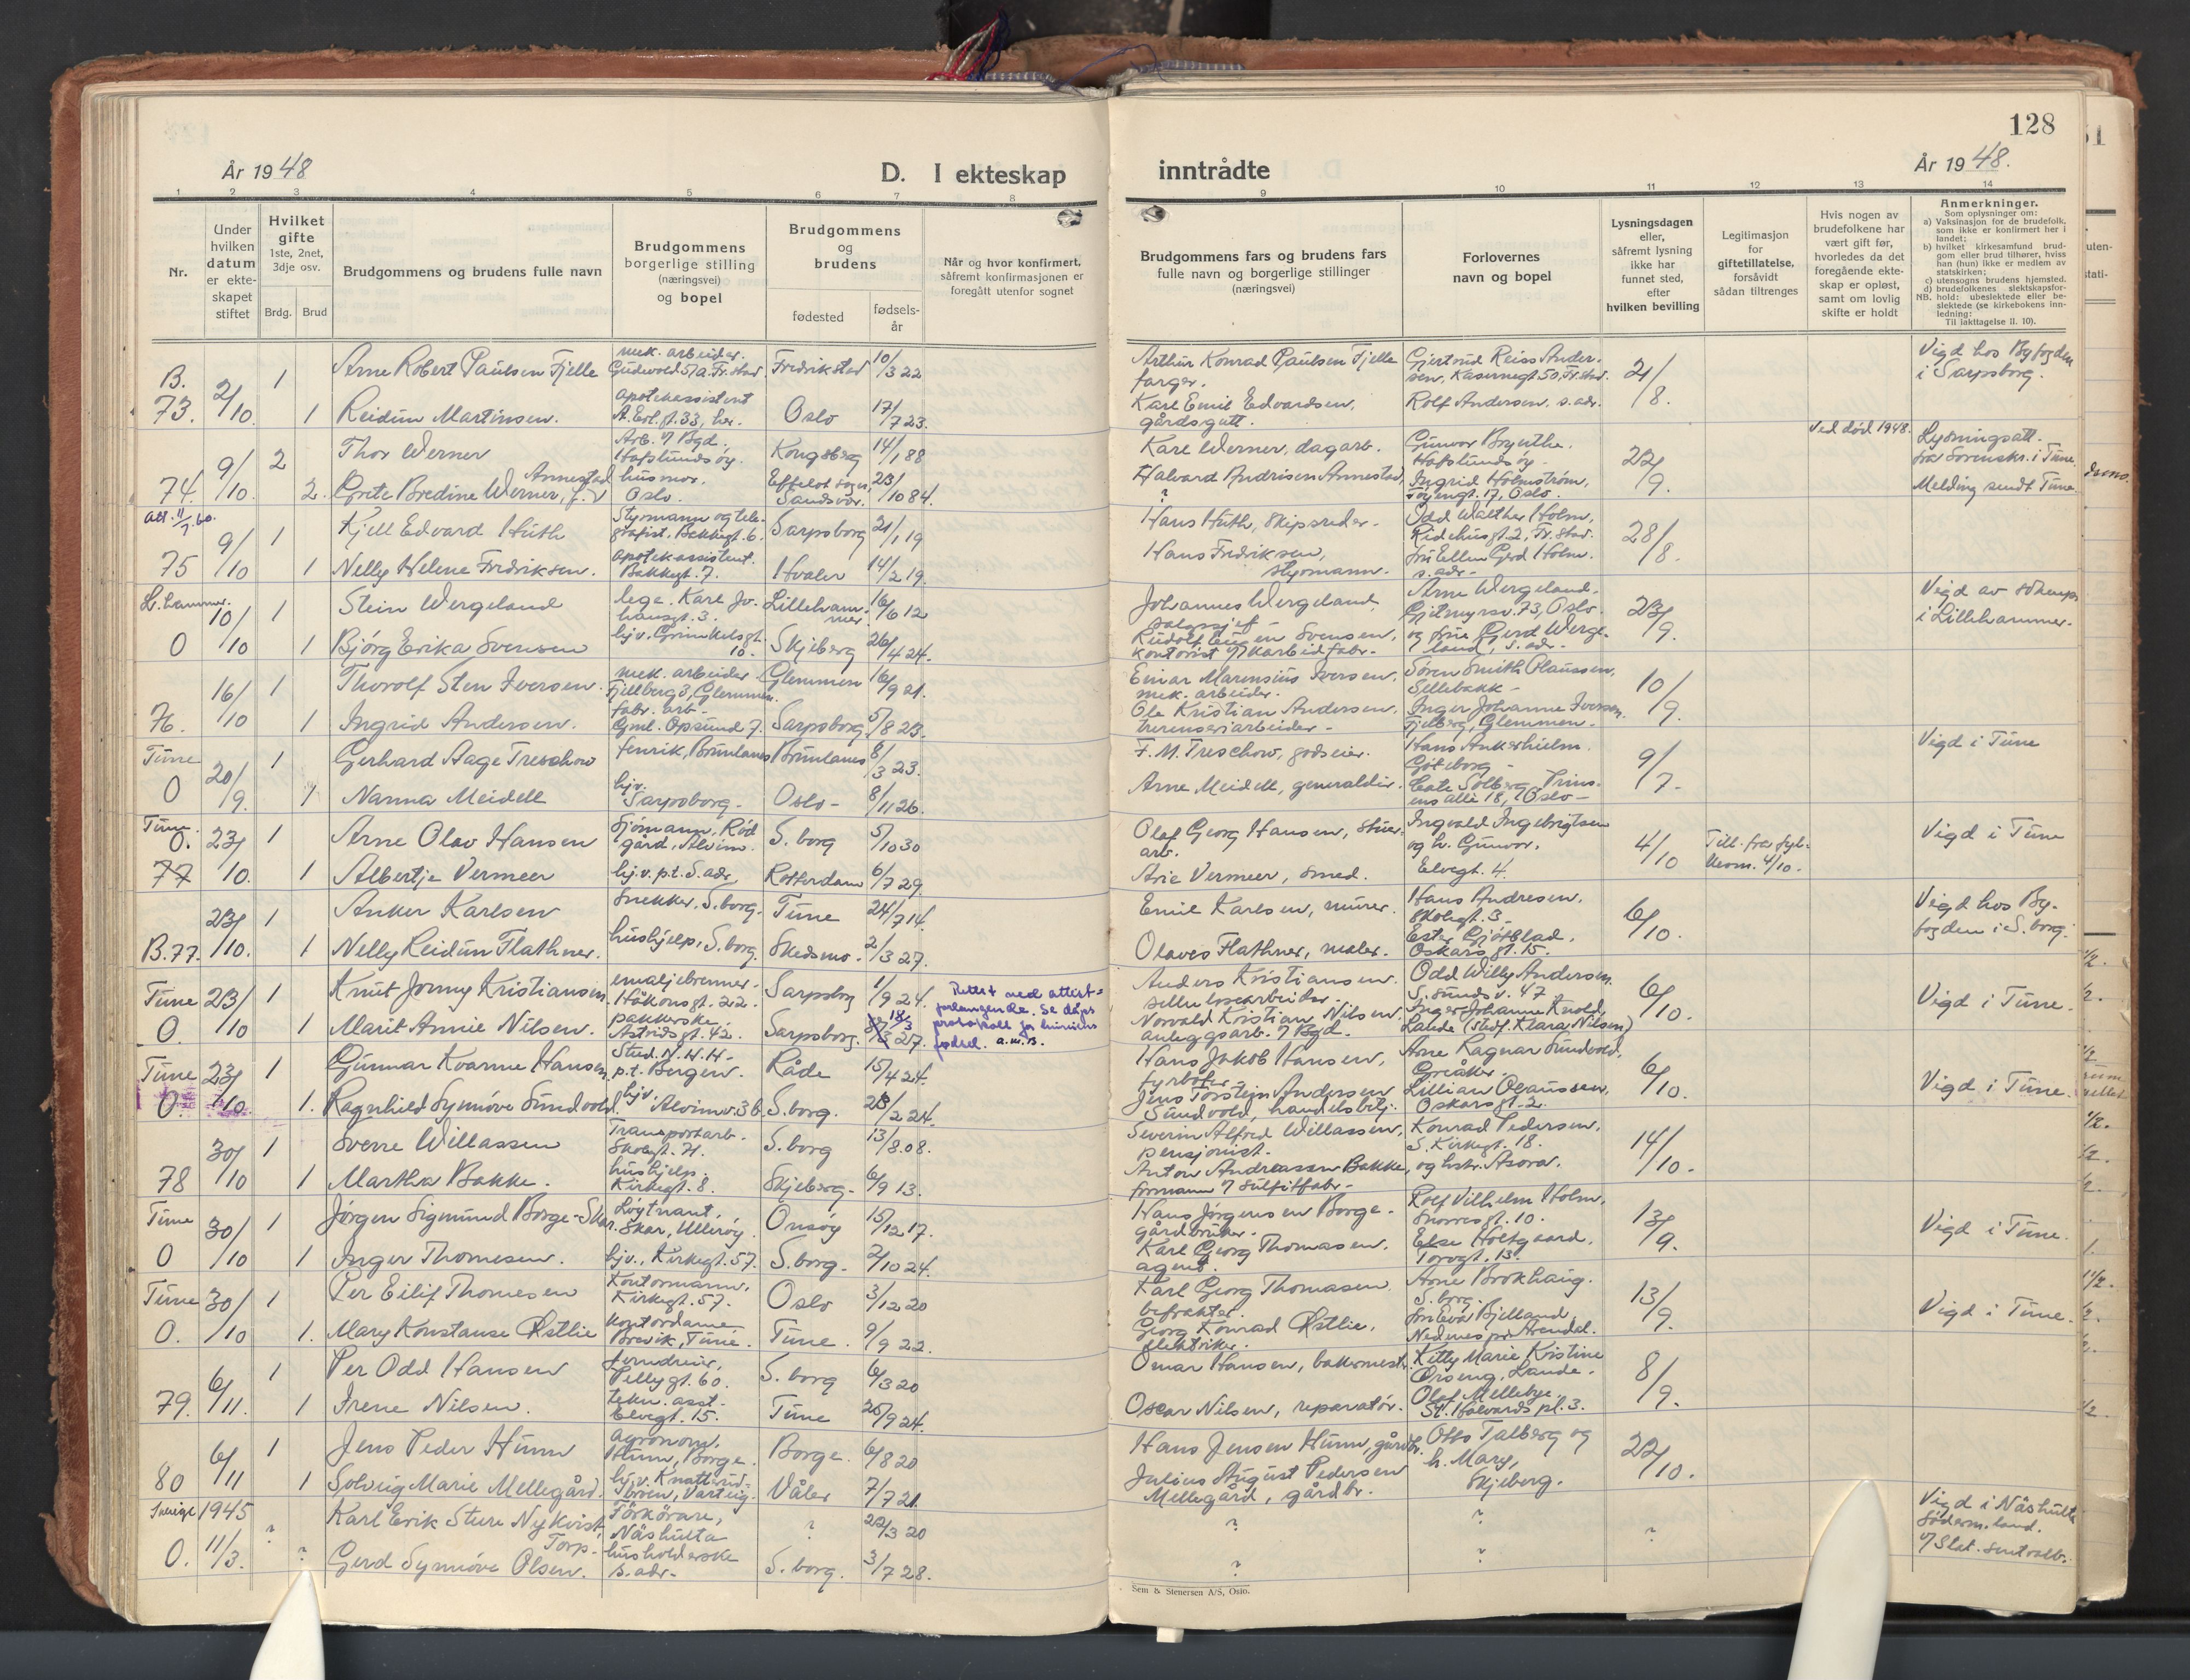 128
År 1948
D. I ekteskap inntrådte
År 1948.
1 2 3 4 5 6 7 8 9 10 11 12 13 14
Nr.
Under hvilken datum er ekteskapet stiftet
Hvilket gifte 1ste, 2net, 3dje osv.
Brdg. Brud
Brudgommens og brudens fulle navn
Brudgommens borgerlige stilling (næringsvei) og bopel
Brudgommens og brudens
fødested
fødselsår
Når og hvor konfirmert, såfremt konfirmasjonen er foregått utenfor sognet
Brudgommens fars og brudens fars fulle navn og borgerlige stillinger (næringsvei)
Forlovernes navn og bopel
Lysningsdagen eller, såfremt lysning ikke har funnet sted, efter hvilken bevilling
Legitimasjon for giftetillatelse, forsåvidt sådan tiltrenges
Hvis nogen av brudefolkene har vært gift før, hvorledes da det foregående ekteskap er opløst, samt om lovlig skifte er holdt
Anmerkninger.
Som oplysninger om:
a) Vaksinasjon for de brudefolk, som ikke er konfirmert her i landet;
b) hvilket kirkesamfund brudgom eller brud tilhører, hviss han (hun) ikke er medlem av statskirken;
c) utensogns brudens hjemsted.
d) brudefolkenes slektskapsforhold: ubeslektede eller beslektede (se kirkebokens innledning:
NB. Til iakttagelse II. 10).
B. 73. 2/10. 1 Arne Robert Paulsen Fjelle mek. arbeider. Fredrikstad 10/3 22 Arthur Konrad Paulsen Fjelle farger. Gjertrud Reiss Andersen, Kasernegt. 50, Fr.stad. 21/8. Vigd hos Byfogden i Sarpsborg.
1 Reidun Martinsen. apotekassistent Oslo 17/7 23. Karl Emil Edvardsen, gårdsgutt. Rolf Andersen. s. adr.
74. 9/10. 2 Thor Werner Arb. v/ Bgd. Hafslundsøy. Kongsberg 14/1 88 Karl Werner, dagarb. Gunvor Brynthe. Hafslundsøy. 22/9. ved død 1948. Lysningsatt. fra Sorenskr. i Tune. Melding sendt Tune.
2. Grete Bredine Werner, f. Annestad husmor. Oslo. Sandsvær. 23/10 84. Halvard Andrisen Annestad ? Ingrid Holmström, Tøyengt. 17, Oslo.
75 9/10 1 Kjell Edvard Huth Styrmann og telegrafist, Bakkegt. 6. Sarpsborg 21/1 19 Hans Huth, Skipsreder. Odd Walther Holm, Ridehusgt. 2, Fr.stad. 28/8.
1 Nelly Helene Fredriksen. apotekassistent. Bakkegt. 7. Hvaler 14/2 19. Hans Fredriksen, styrmann. fru Ellen Gerd Holm. s. adr.
L.hammer. 0 10/10 1 Stein Wergeland lege. Karl Johansgt. 3. Lillehammer 16/6 12 Johannes Wergeland, salgssjef Arne Wergeland. Gjitmyrsv. 73, Oslo. 23/9. Vigd av i Lillehammer.
1 Bjørg Erika Svensen hjv. Grimkelsgt. 10. Skjeberg 26/4 24. Rudolf Eugen Svensen, kontorist v/ Karbidfabr. og frue Gerd Wergeland, s. adr.
76. 16/10 1 Thorolf Sten Iversen. mek. arbeider Fjellberg 3, Glemmen. Glemmen 16/9 21. Einar Marensius Iversen, mek. arbeider. Søren Smith Olaussen, Sellebakk 10/9.
1 Ingrid Andersen. fabr. arb. Gml. Opsund. 7. Sarpsborg 5/8 23. Ole Kristian Andersen, renseriarbeider Inger Johanne Iversen. Fjelberg, Glemmen.
Tune 0 20/9. 1 Gerhard Aage Treschow fenrik, Brunlanes Brunlanes 8/3 23. F. M. Treschow, godseier. Hans Ankerhielm. Göteborg 9/7. Vigd i Tune
1 Nanna Meidell hjv. Sarpsborg. Oslo 8/11 26. Arne Meidell, generaldir. Cate Solberg, Prinsens alle 18, Oslo
Tune. 0. 77 23/10. 1 Arne Olav Hansen Sjømann, Rødgård, Alvim. S. borg 5/10 30 Olaf Georg Hansen, stuerarb. Ingvald Ingebrigtsen og h. Gunvor, 4/10 Till. fra fylkesm. 4/10. Vigd i Tune
1 Albertje Vermeer hjv. p.t. S. adr. Rotterdam 6/7 29. Arie Vermeer, smed. Elvegt. 4.
B. 77. 23/10. 1 Anker Karlsen Snekker, S. borg. Tune 24/7 14. Emil Karlsen, murer. Hans Andresen. Skolegt. 3. 6/10. Vigd hos Byfogden i S. borg.
1 Nelly Reidun Flathner. hushjelp, S. borg Skedsmo. 2/3 27. Olaves Flathner, maler. Ester Gjøtblad. Oskarsgt. 15.
Tune 0. 23/10 1 Knut Jonny Kristiansen emaljebrenner. Håkonsgt. 22. Sarpsborg 1/9 24. Anders Kristiansen. cellulosearbeider. Odd Willy Andersen S. sundsv. 47 6/10. Vigd i Tune.
1 Marit Annie Nilsen. pakkerske Astridsgt. 42. Sarpsborg. 18/3 27. Rettet ved attest forlangende. Se dåps protokoll for kvinnens fødsel. a.m.B. Norvald Kristian Nilsen, anleggsarb. v/ Bgd. Inger Johanne Knold, Lande (stedf. Klara Nilsen)
Tune 0. 23/10. 1 Gunnar Kvarme Hansen Stud. N.H.H. p.t. Bergen. Råde 15/4 24. Hans Jakob Hansen, fyrbøter. Arne Ragnar Sundvold, Greåker. 6/10. Vigd i Tune.
1. Ragnhild Synnøve Sundvold. hjv. Alvimv. 3b. S. borg. 23/2 24. Jens Torstein Andersen Sundvold, handelsbetj. Lillian Olaussen. Oskarsgt. 2.
78 30/10 1 Sverre Willassen Transportarb. Skolegt. 71. S. borg 13/8.08. Severin Alfred Willassen, pensjonist. Konrad Pedersen. S. Kirkegt. 18. 14/10.
1 Martha Bakke. hushjelp. Kirkegt. 8. Skjeberg. 6/9 13. Anton Andreassen Bakke, formann v/ Sulfitfabr. og hstr. Asora.
Tune 0 30/10 1 Jørgen Sigmund Borge-Skar. Løytnant, Skar, Ullerøy. Onsøy 15/12 17. Hans Jørgensen Borge. gårdbruker. Rolf Vilhelm Holm, Snorresgt. 10. 13/9. Vigd i Tune.
1 Inger Thomesen. hjv., Kirkegt. 57. S. borg. 2/10 24. Karl Georg Thomasen. agent. Else Holtgaard. Torvgt. 13.
Tune 0. 30/10 1 Per Eilif Thomesen Kontormann, Kirkegt. 57. Oslo 3/12 20 Karl Georg Thomasen befrakter. Arne Brokhaug. S. borg. 13/9. Vigd i Tune.
1. Mary Konstanse Østlie Kontordame Brevik, Tune. Tune. 9/9 22. Georg Konrad Østlie, elektriker. fru Eva Bjelland Nedenes pr. Arendal.
79. 6/11. 1 Per Odd Hansen jerndreier, Pellygt. 60. S. borg 6/3 20 Omar Hansen, bakermestr. Kitty Marie Kristine Ørseng, Lande. 8/9.
1 Irene Nilsen. tekn. asst. Elvegt. 15. Tune 26/9 24. Oscar Nilsen, reparatør. Olaf Mellebye. St. Halvards pl. 3.
80 6/11 1 Jens Peder Hunn agronom, Hunn, Borge. Borge. 6/8 20 Hans Jensen Hunn, gårdbr. Otto Talberg og h. Mary, Skjeberg. 22/10.
1 Solveig Marie Mellegård. hjv. Varteig. Våler 7/7 21. Julius August Pedersen Mellegård, gårdbr.
Sverige 0. 1945 11/3. ? Karl Erik Sture Nykvist, Förkörare, Näshulta ? 22/3 20 ? ? ? Vigd i Näshulta Söderm.land. v/ Stat. sentralb.
? Gerd Synnøve Olsen. Torp. husholderske s. adr. S. borg. 3/7 28. ? ?
Sem & Stenersen A/S, Oslo.